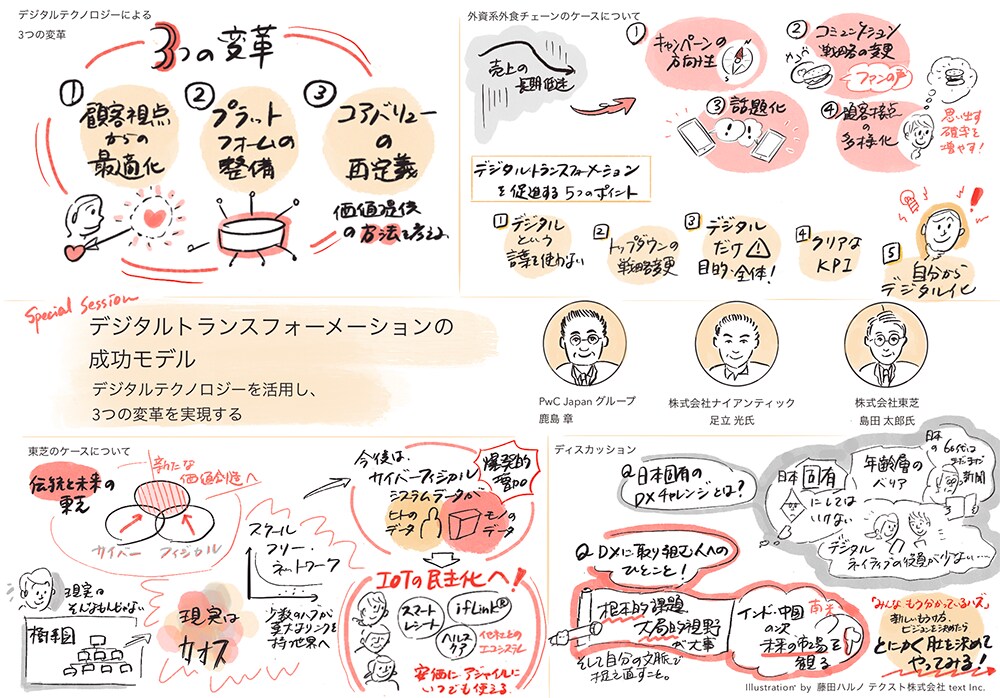 デジタルテクノロジーによる
3つの変革
3つの変革
①
顧客視点
からの
最適化
②
プラット
フォームの
整備
③
コアバリュー
の
再定義
価値提供
の方法を考える
外資系外食チェーンのケースについて
売上の
長期低迷
①
キャンペーンの
方向性
N
S
②
コミュニケーション
戦略の変更
ファンの声
③ 話題化
④ 顧客接点
の
多様化
思い出す
確率を
増やす!
デジタルトランスフォーメーション
を促進する5つのポイント
1
デジタル
という
言葉を使わない
2
トップダウンの
戦略変更
3
デジタル
だけ
目的・全体!
4
クリアな
KPI
5
自分から
デジタル化
Special Session
デジタルトランスフォーメーションの
成功モデル
デジタルテクノロジーを活用し、
3つの変革を実現する
PwC Japan グループ
鹿島 章
株式会社ナイアンティック
足立 光氏
株式会社東芝
島田 太郎氏
東芝のケースについて
伝統と未来の
東芝
新たな
価値創造へ
サイバー
フィジカル
現実は
そんなもんじゃない
樹構図
現実は
カオス
スケール
フリー・
ネットワーク
少数のハブが
莫大なリンクを
持つ世界へ
今後は、
サイバーフィジカル
システムデータが
爆発的
増加
ヒトの
データ
モノの
データ
IoTの民主化へ!
スマート
レシート
ifLink®
ヘルス
ケア
エコシステム
安価にアジャイルに
いつでも使える
ディスカッション
Q 日本固有の
DXチャレンジとは?
日本固有
にしては
いけない
年齢層の
バリア
日本の
60代は
まだまだ
新聞
デジタル
ネイティブの役員が少ない…
Q DXに取り組む人への
ひとこと!
根本的課題
大局的視野
が大事
そして自分の文脈で
捉え直すこと。
インド・中国
の次
南米
未来の市場を
観る
「みんな もう分かっているハズ」
新しいもうけ方、
ビジョンを決めたら
とにかく肚を決めて
やってみる!
Illustration by 藤田ハルノ テクスト株式会社 text Inc.